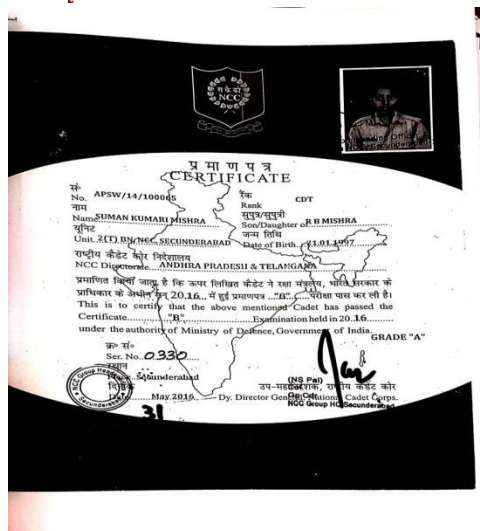 रा के को
NCC
प्रमाण पत्र
CERTIFICATE
सं॰
No. APSW/14/100065
रैंक
Rank CDT
नाम
Name SUMAN KUMARI MISHRA
सुपुत्र/सुपुत्री
Son/Daughter of R B MISHRA
यूनिट
Unit. 2(T) BN NCC SECUNDERABAD
जन्म तिथि
Date of Birth 21.01.1997
राष्ट्रीय कैडेट कोर निदेशालय
NCC Directorate ANDHRA PRADESH & TELANGANA
प्रमाणित किया जाता है कि ऊपर लिखित कैडेट ने रक्षा मंत्रालय, भारत सरकार के
प्राधिकार के अधीन सन् 20.16... में हुई प्रमाणपत्र ..."B"... परीक्षा पास कर ली है।
This is to certify that the above mentioned Cadet has passed the
Certificate......"B"......Examination held in 20.16......
under the authority of Ministry of Defence, Government of India.
GRADE "A"
क्र॰ सं॰
Ser. No. 0330
स्थान
Secunderabad
दिनांक
31 May 2016
(NS Pal)
उप-महानिदेशक, राष्ट्रीय कैडेट कोर
Dy. Director General, National Cadet Corps.
NCC Group HQ Secunderabad
NCC Group Headquarters
Secunderabad